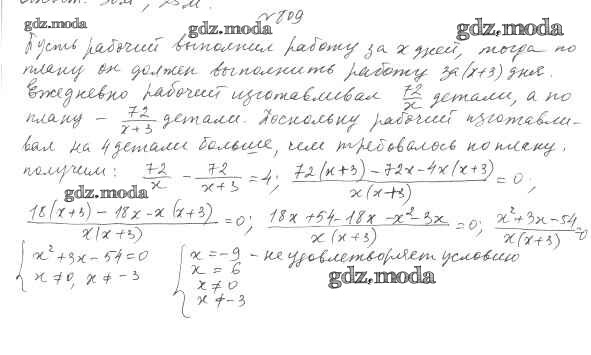 №709
gdz.moda gdz.moda gdz.moda
Пусть рабочий выполнил работу за x дней, тогда по
плану он должен выполнить работу за (x+3) дня.
Ежедневно рабочий изготавливал 72/x детали, а по
плану - 72/(x+3) детали. Поскольку рабочий изготавли-
вал на 4 детали больше, чем требовалось по плану,
получим: 72/x - 72/(x+3) = 4; (72(x+3) - 72x - 4x(x+3))/(x(x+3)) = 0;
gdz.moda
(18(x+3) - 18x - x(x+3))/(x(x+3)) = 0; (18x + 54 - 18x - x² - 3x)/(x(x+3)) = 0; (x² + 3x - 54)/(x(x+3)) = 0
{ x² + 3x - 54 = 0 { x = -9 - не удовлетворяет условию
x ≠ 0, x ≠ -3 x = 6
gdz.moda
x ≠ 0
x ≠ -3